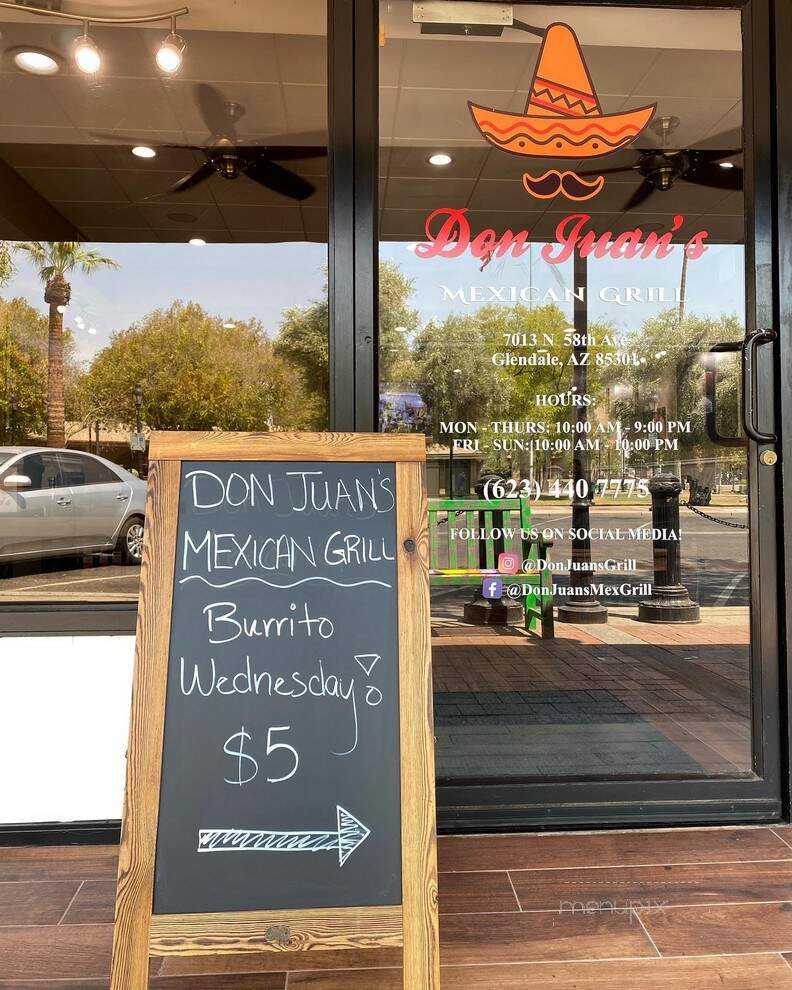 Don Juan's
MEXICAN GRILL
7013 N 58th Ave
Glendale, AZ 85301
HOURS:
MON - THURS: 10:00 AM - 9:00 PM
FRI - SUN: 10:00 AM - 10:00 PM
(623) 440 7775
FOLLOW US ON SOCIAL MEDIA!
@DonJuansGrill
@DonJuansMexGrill
DON JUAN'S
MEXICAN GRILL
Burrito
Wednesday!
$5
menupix